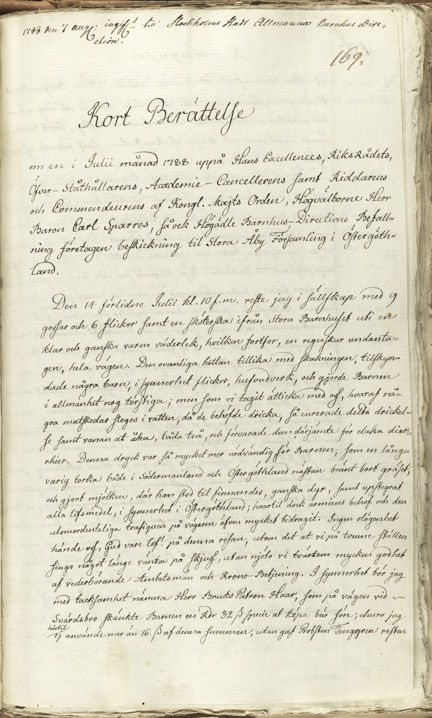 1788 den 7 aug: ingifs till Stockholms Stads Allmänna Barnhus Dire-
ction.
169.
Kort Berättelse
om en i Julii månad 1788 uppå Hans Excellences, Riks Rådets,
Öfver-Ståthållarens, Academie-Cancellerens samt Riddarens
och Commendeurens af Kongl. Majts Orden, Högvälborne Herr
Baron Carl Sparres, så ock Högädle Barnhus-Directions Befall-
ning företagen beskickning til Stora Åby Församling i Östergöth-
land.
Den 14 förlidne Julii kl. 10 f.m. reste jag i sällskap med 9
gossar och 6 flickor samt en sköterska ifrån Stora Barnhuset uti en
klar och ganska varm väderlek, hvilken fortfor, en regnskur undanta-
gen, hela vägen. Den ovanliga hettan tillika med skakningen, tillskyn-
dade några barn, i synnerhet flickor, hufvudverk, och gjorde Barnen
i allmänhet nog törstiga; men som vi tagit ätticka med oss, hvaraf nå-
gra matskedar slogos i vatten, då de behöfde dricka, så curerade detta
se samt vanan at åka, båda två, och förvarade dem därjämte för elaka diar-
rhéer. Denna dryck var så mycket mer nödvändig för Barnen, som en lång-
varig torka både i Södermanland och Östergöthland nästan bränt bort gräset,
och gjort mjölken, där hon stod til finnandes, ganska dyr, samt upstegrat
alla lifsmedel, i synnerhet i Östergöthland; hvartil dock arméens behof och den
utomordenteliga trafiquen på vägarne äfven mycket bidragit. Ingen olägenhet
hände oss, Gud vare lof! på denna resan, utom det at vi på trenne ställen
fingo något länge vänta på skjuts, utan njöto vi tvärtom mycken godhet
af vederbörande Ämbetsmän och Krono-Betjening. I synnerhet bör jag
med tacksamhet nämna Herr Bruks Patron Haar, som på vägen vid
Svärdsbro skänkte Barnen en Rdr 32 ß specie at köpa bär före; churu jag
ej använde mer än 16 ß af denna summan, utan gaf Probsten Tenggren resten